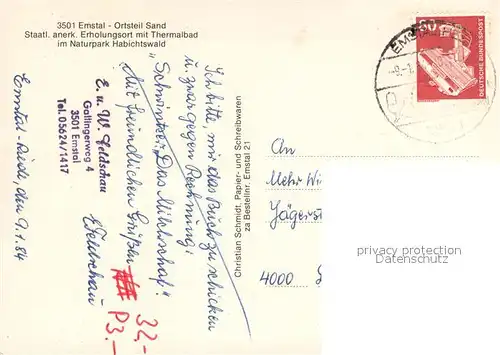 3501 Emstal - Ortsteil Sand
Staatl. anerk. Erholungsort mit Thermalbad
im Naturpark Habichtswald
Emstal-Riede, den 9.1.84
E. u. W. Feldschau
Gallingerweg 4
3501 Emstal
Tel. 05624/1417
Ich bitte, mir das Buch zu schicken
u. zwar gegen Rechnung:
"Schwintzer, Das Milchschaf".
Mit freundlichen Grüßen
EFeldschau
32,-
P3.-
Christian Schmidt, Papier- und Schreibwaren
za Bestellnr. Emstal 21
EMSTAL
DEUTSCHE BUNDESPOST
An
Mehr Wi
Jägerst
4000
privacy protection
Datenschutz